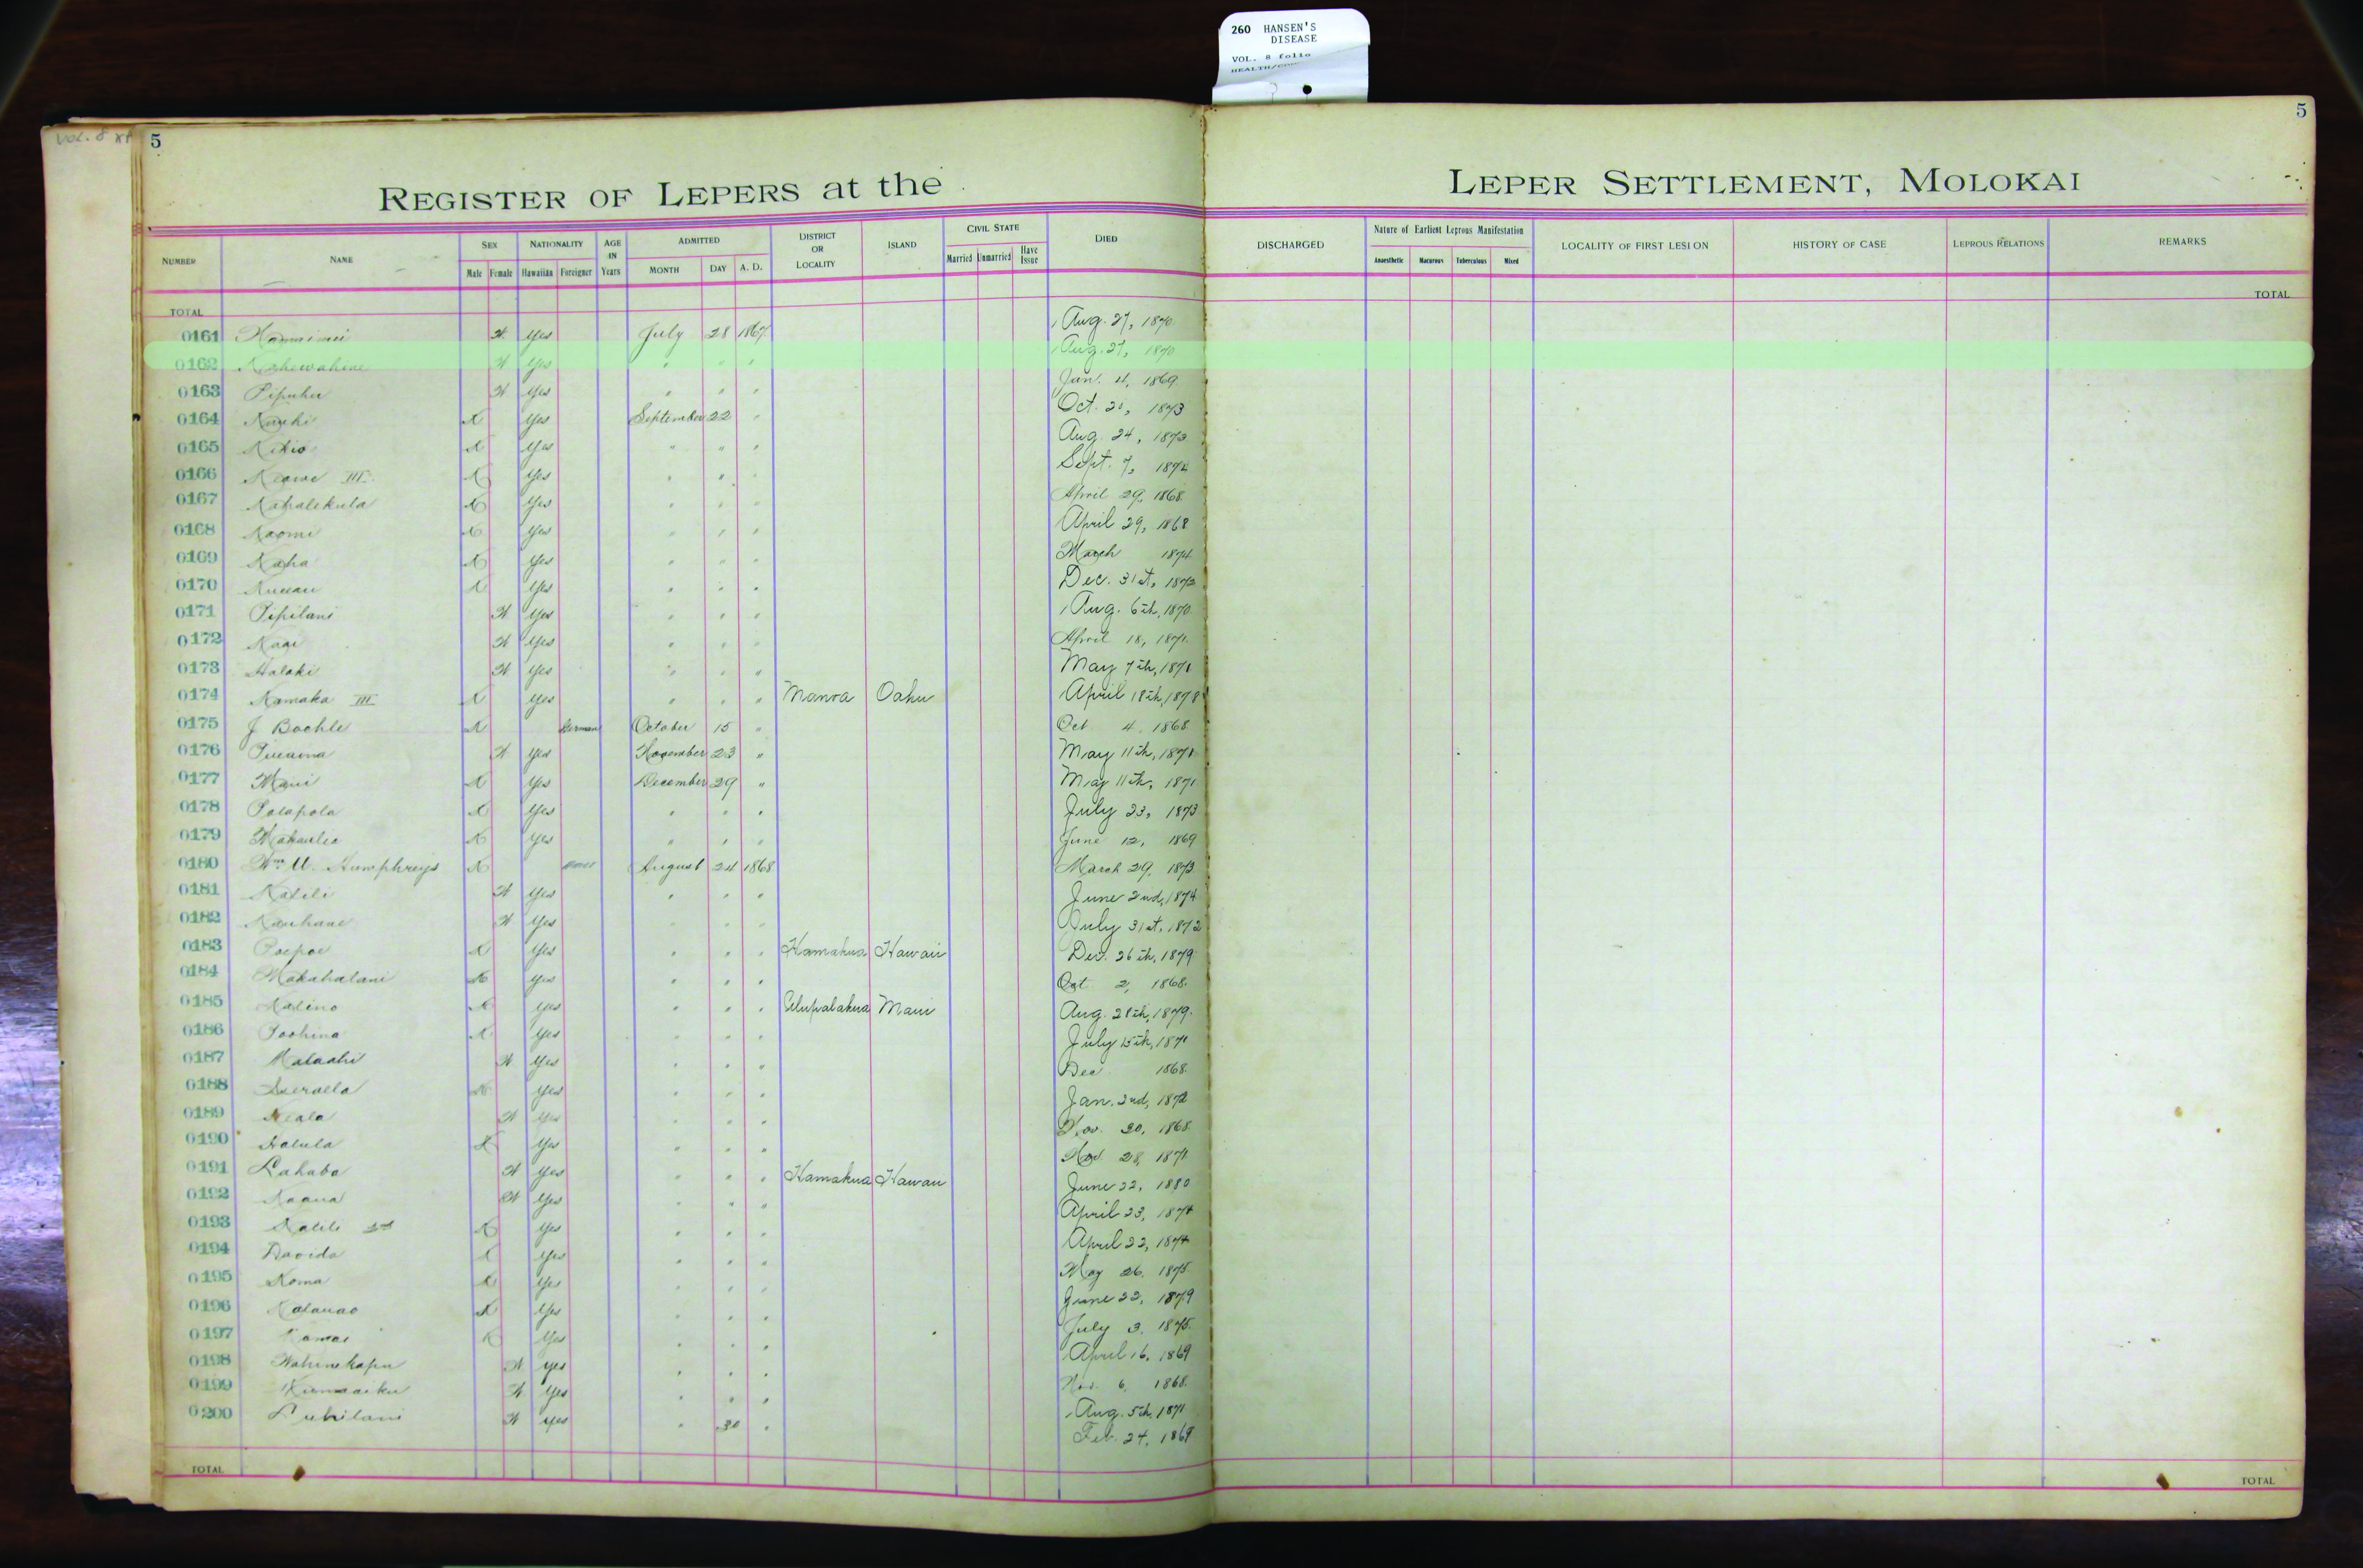 260 HANSEN'S
DISEASE
VOL. 8 folio
VOL. 8
5
5
REGISTER OF LEPERS at the LEPER SETTLEMENT, MOLOKAI
NUMBER NAME SEX NATIONALITY AGE IN Years ADMITTED DISTRICT OR LOCALITY ISLAND CIVIL STATE DIED DISCHARGED Nature of Earliest Leprous Manifestation LOCALITY OF FIRST LESION HISTORY OF CASE LEPROUS RELATIONS REMARKS
Male Female Hawaiian Foreigner MONTH DAY A. D. Married Unmarried Have Issue Anaesthetic Macurous Tuberculous Mixed
TOTAL TOTAL
0161 Yes July 28 1867 Aug. 27, 1870
0162 Kahewahine Yes " " " Aug. 27, 1870
0163 Pipuhu Yes " " " Jan. 4, 1869
0164 Yes September 22 " Oct. 21, 1873
0165 Kikio Yes " " " Aug. 24, 1873
0166 Keawe III Yes " " " Sept. 7, 1874
0167 Kahalekula Yes " " " April 29, 1868
0168 Naomi Yes " " " April 29, 1868
0169 Kaha Yes " " " March 1874
0170 Yes " " " Dec. 31st, 1873
0171 Pipilani Yes " " " Aug. 6th, 1870
0172 Yes " " " April 18, 1871
0173 Halaki Yes " " " May 7th, 1871
0174 Kamaka III Yes " " " Manoa Oahu April 18th, 1878
0175 J Boehle German October 15 " Oct 4, 1868
0176 Yes November 23 " May 11th, 1871
0177 Maui Yes December 29 " May 11th, 1871
0178 Polapola Yes " " " July 23, 1873
0179 Yes " " " June 12, 1869
0180 Wm. Humphreys August 24 1868 March 29, 1873
0181 Kalili Yes " " " June 2nd, 1874
0182 Kauhane Yes " " " July 31st, 1872
0183 Poepoe Yes " " " Hamakua Hawaii Dec. 26th, 1879
0184 Makahalani Yes " " " Oct 2, 1868
0185 Kalino Yes " " " Ulupalakua Maui Aug. 28th, 1879
0186 Poohina Yes " " " July 15th, 1871
0187 Malaahi Yes " " " Dec 1868
0188 Yes " " " Jan. 2nd, 1872
0189 Keala Yes " " " Nov. 30, 1868
0190 Halula Yes " " " Nov. 28, 1871
0191 Lahaba Yes " " " Hamakua Hawaii June 22, 1880
0192 Kaaua Yes " " " April 23, 1874
0193 Kalili 2nd Yes " " " April 22, 1874
0194 Davida Yes " " " May 26, 1875
0195 Koma Yes " " " June 22, 1879
0196 Kalauao Yes " " " July 3, 1875
0197 Kamai Yes " " " April 16, 1869
0198 Wahinekapu Yes " " " Nov. 6, 1868
0199 Kumaaiku Yes " " " Aug. 5th, 1871
0200 Luhilani Yes " 30 " Feb. 24, 1869
TOTAL TOTAL